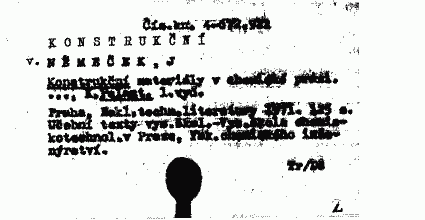 Čís.kn. 4-572.922
KONSTRUKČNÍ
v. NĚMEČEK, J
Konstrukční materiály v chemické praxi.
..., 1. vyd.
Praha, Nakl.techn.literatury 1971. 125 s.
Učební texty vys.škol.-Vys.škola chemic-
kotechnol.v Praze, Fak.chemického inže-
nýrství.
Tr/Dě